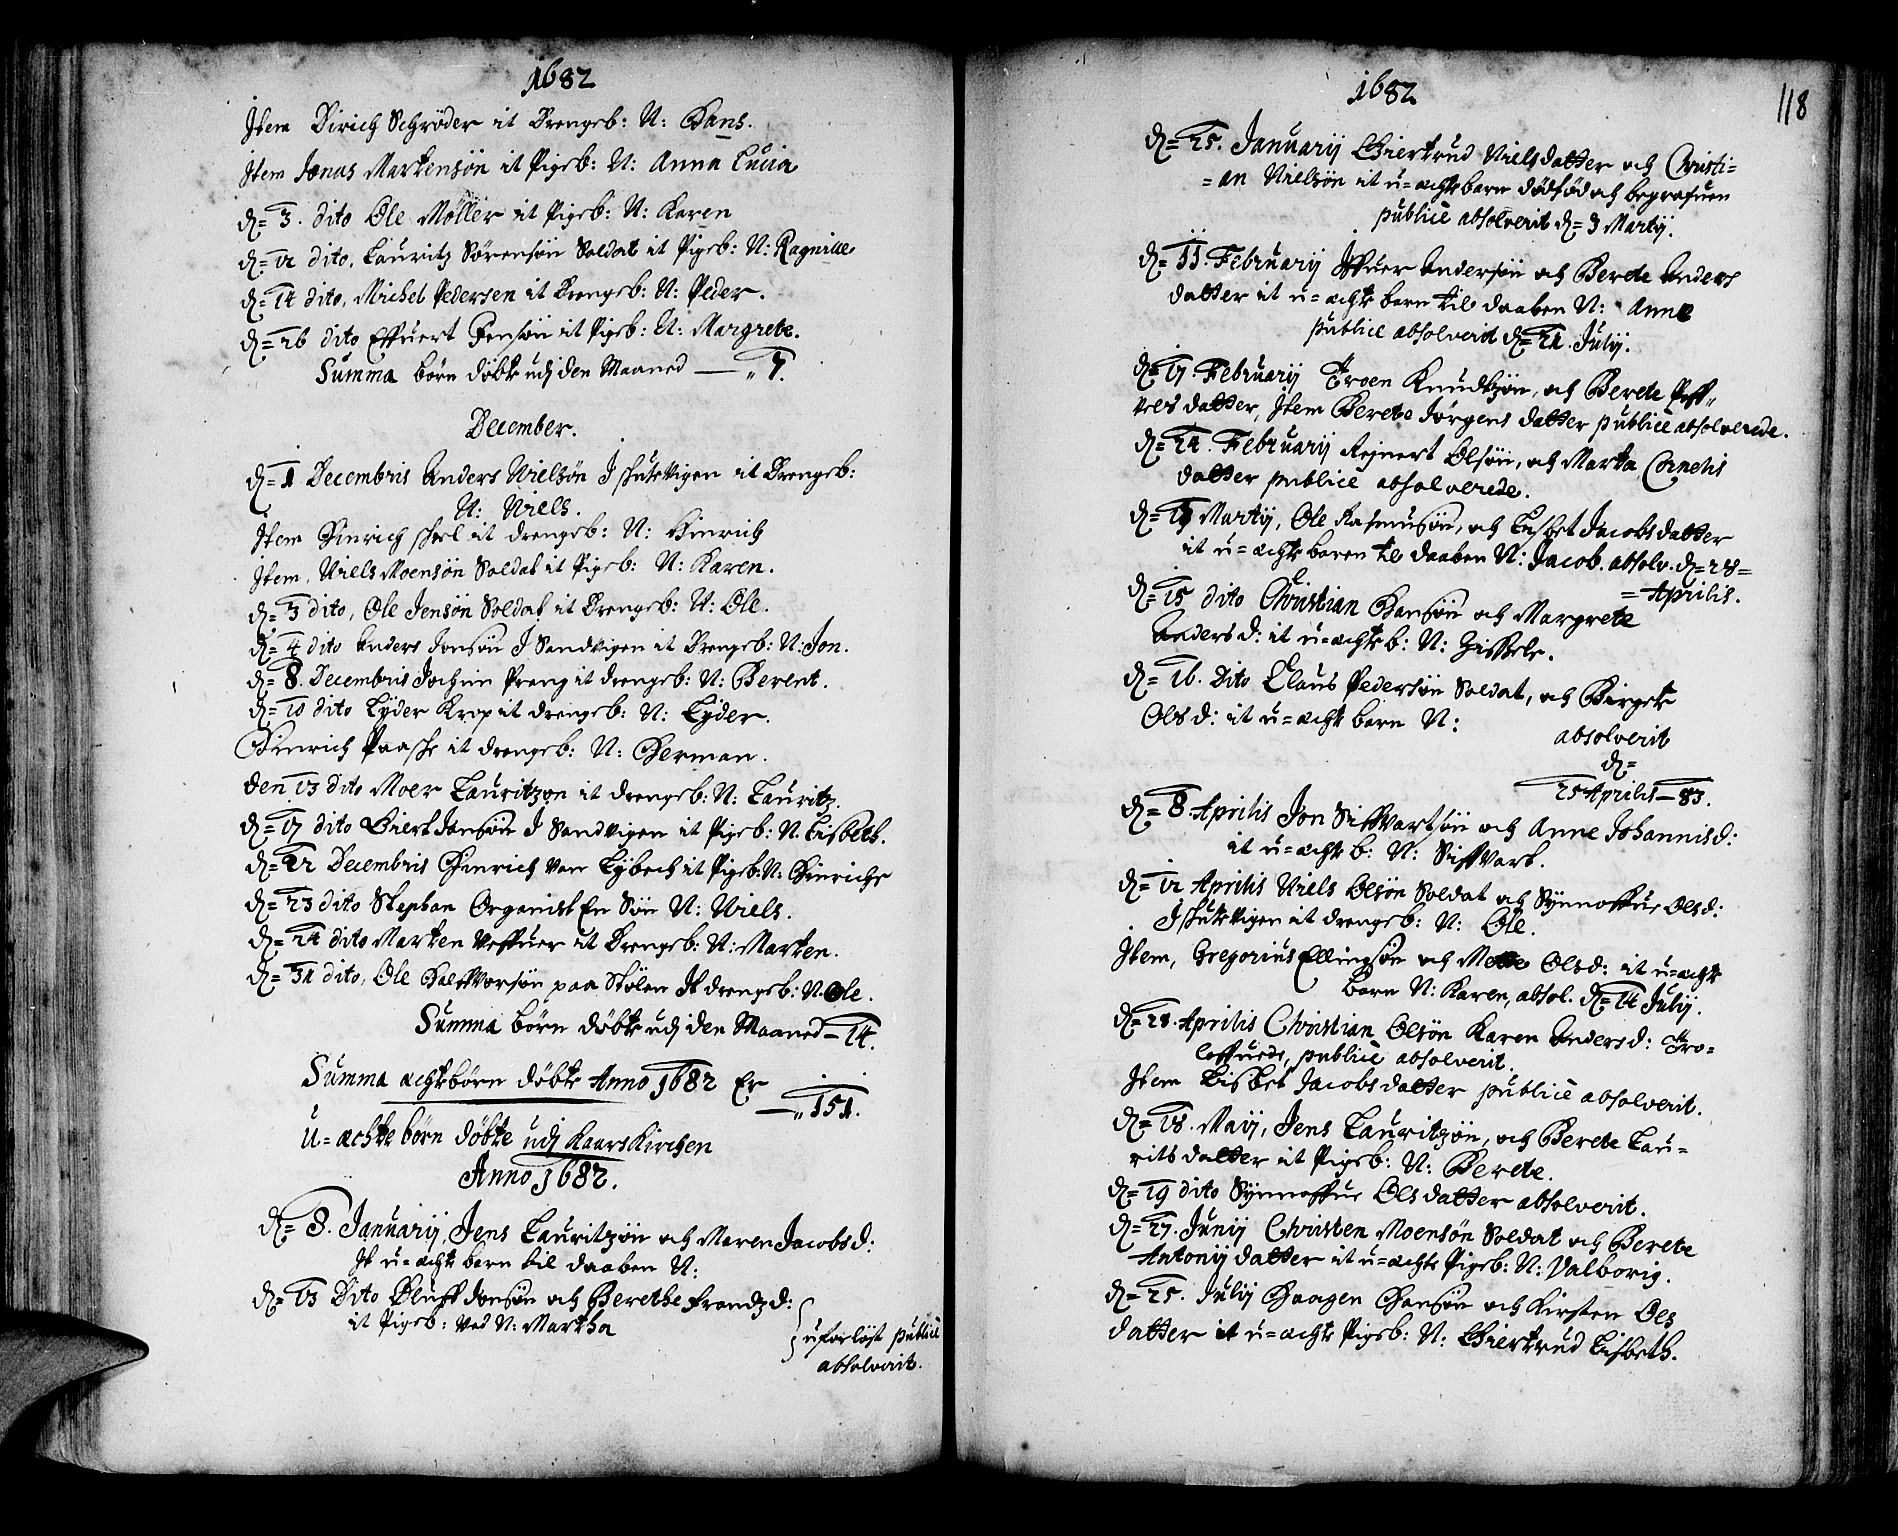 1682
Item Dirich Schrøder it Drengeb: N: Hans.
Item Jonas Martensøn it Pigeb: N: Anna Lucia
D= 3. dito Ole Møller it Pigeb: N: Karen
D= 12 dito, Lauritz Sørensøn Soldat it Pigeb: N: Ragnille
D= 14 dito, Michel Pedersen it Drengeb: N: Peder.
D= 26 dito Effuert Jensøn it Pigeb: N: Margrete.
Summa børn døbte udj den Maaned — „ 7.
December.
D= 1 Decembris Anders Nielsøn I skutevigen it Drengeb:
N: Niels.
Item Hinrich skeel it drengeb: N: Hinrich
Item, Niels Moensøn Soldat it Pigeb: N: Karen.
D= 3 dito, Ole Jensøn Soldat it Drengeb: N: Ole.
D= 4 dito Anders Jonsøn I Sandvigen it Drengeb: N: Jon.
D= 8. Decembris Jochim Prang it drengeb: N: Berent.
D= 10 dito Lyder Krop it drengeb: N: Lyder.
Hinrich Paaske it drengeb: N: Herman.
Den 13 dito Moer Lauritzøn it drengeb: N: Lauritz.
D= 17 dito Giert Jonsøn I Sandvigen it Pigeb: N. Lisbeth.
D= 22 Decembris Hinrich Van Lybech it Pigeb: N: Hinriche
D= 23 dito Stephan Organist En Søn N: Niels.
D= 24 dito Marten Veffuer it Drengeb: N: Marten.
D= 31 dito, Ole Halffvorsøn paa Stølen It drengeb: N. Ole.
Summa børn døbte udj den Maaned — 14.
Summa ächtebørn døbte Anno 1682 Er
— „ 151.
U=ächte børn døbte udj Kaars Kirchen
Anno 1682.
D= 8. Januarij, Jens Lauritzøn och Maren Jacobsd:
It u=ächt barn til daaben N:
D= 13 Dito Oluff Jonsøn och Berethe Frandzd:
it Pigeb: Ved N: Martha
uforløst publicè
absolverit.
1682
118
D= 25. Januarij Giertrud Nielsdatter och Christi=
=an Nielsøn it u=ächte barn dødfød och begrafuen
publicè absolverit D= 3 Martij.
D= 11. Februarij Iffuer Andersøn och Berete Anders
datter it u=ächte barn til daaben N: Anne
publicè absolverit D= 21. Julij.
D= 17. Februarij Troen Knudtzøn, och Berete Pett=
ters datter, Item Berete Jørgens datter publicè absolverede.
D= 24. Februarij Rejnert Olsøn, och Marta Cornelis
datter publicè absolverede.
D= 14 Martij, Ole Rasmusøn, och Lisbet Jacobsdatter
it u=ächte barn til daaben N: Jacob. absolv. D= 28=
=Aprilis.
D= 15 dito Christian Hansøn och Margrete
Andersd: it u=ächte b: N: Zissele.
D= 16. Dito Claus Pedersøn Soldat, och Birgete
Olsd: it u=ächt barn N:
absolverit
D=
25 Aprilis — 83.
D= 8. Aprilis Jon Siffvartsøn och Anne Johannisd:
it u=ächt b: N: Siffvart.
D= 12 Aprilis Niels Olsøn Soldat och Synnoffue Olsd:
I skutevigen it drengeb: N: Ole.
Item, Gregorius Ellingsøn och Mette Olsd: it u=ächt
barn N: Karen, absol. D= 14 Julij.
D= 28. Aprilis Christian Olsøn Karen Andersd: Tro=
loffuede, publicè absolverit.
Item Lisbet Jacobsdatter publicè absolverit.
D= 18. Maij, Jens Lauritzøn, och Berete Lau=
ritsdatter it Pigeb: N: Berete.
D= 19 dito Synnoffue Olsdatter absolverit.
D= 27. Junij Christen Moensøn Soldat och Berete
Antonij datter it u=ächte Pigeb: N: Valborig.
D= 25. Julij Haagen Hansøn och Kirsten Ols
datter it u=ächte Pigeb: N: Giertrud Lisbeth.